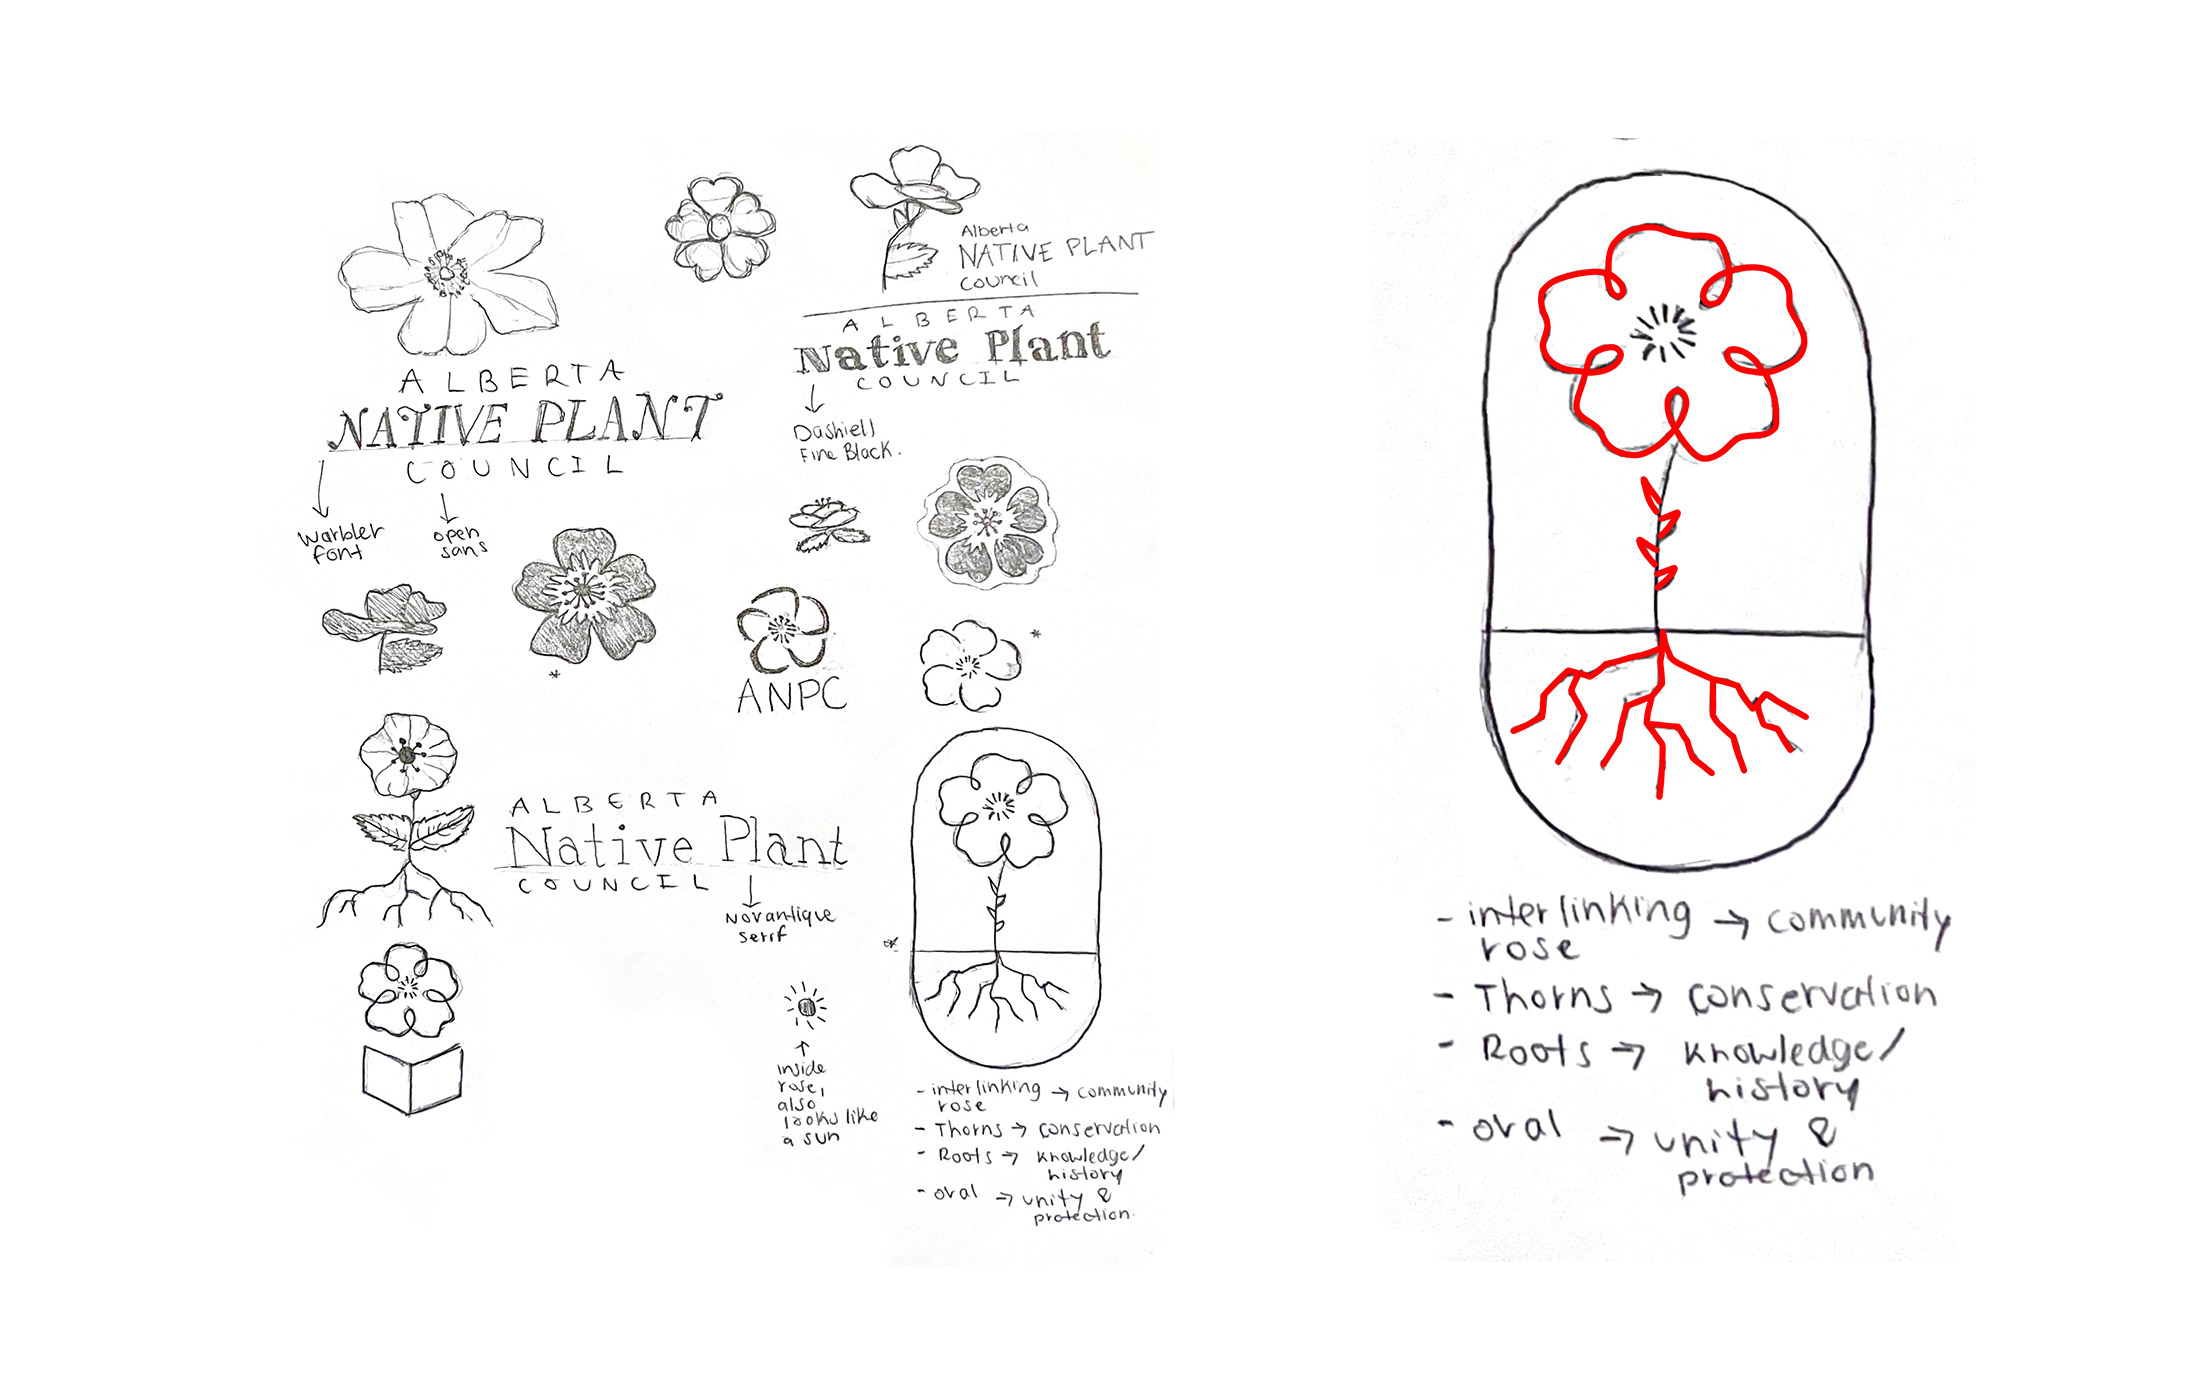 Alberta
NATIVE PLANT
Council
ALBERTA
Native Plant
COUNCIL
Dashiell
Fine Black.
ALBERTA
NATIVE PLANT
COUNCIL
Warbler
font
open
sans
ANPC
ALBERTA
Native Plant
COUNCIL
Novantique
Serif
Inside
rose,
also
looks like
a sun
- interlinking → community
rose
- Thorns → conservation
- Roots → knowledge/
history
- oval → unity &
protection.
- interlinking → community
rose
- Thorns → conservation
- Roots → knowledge/
history
- oval → unity &
protection